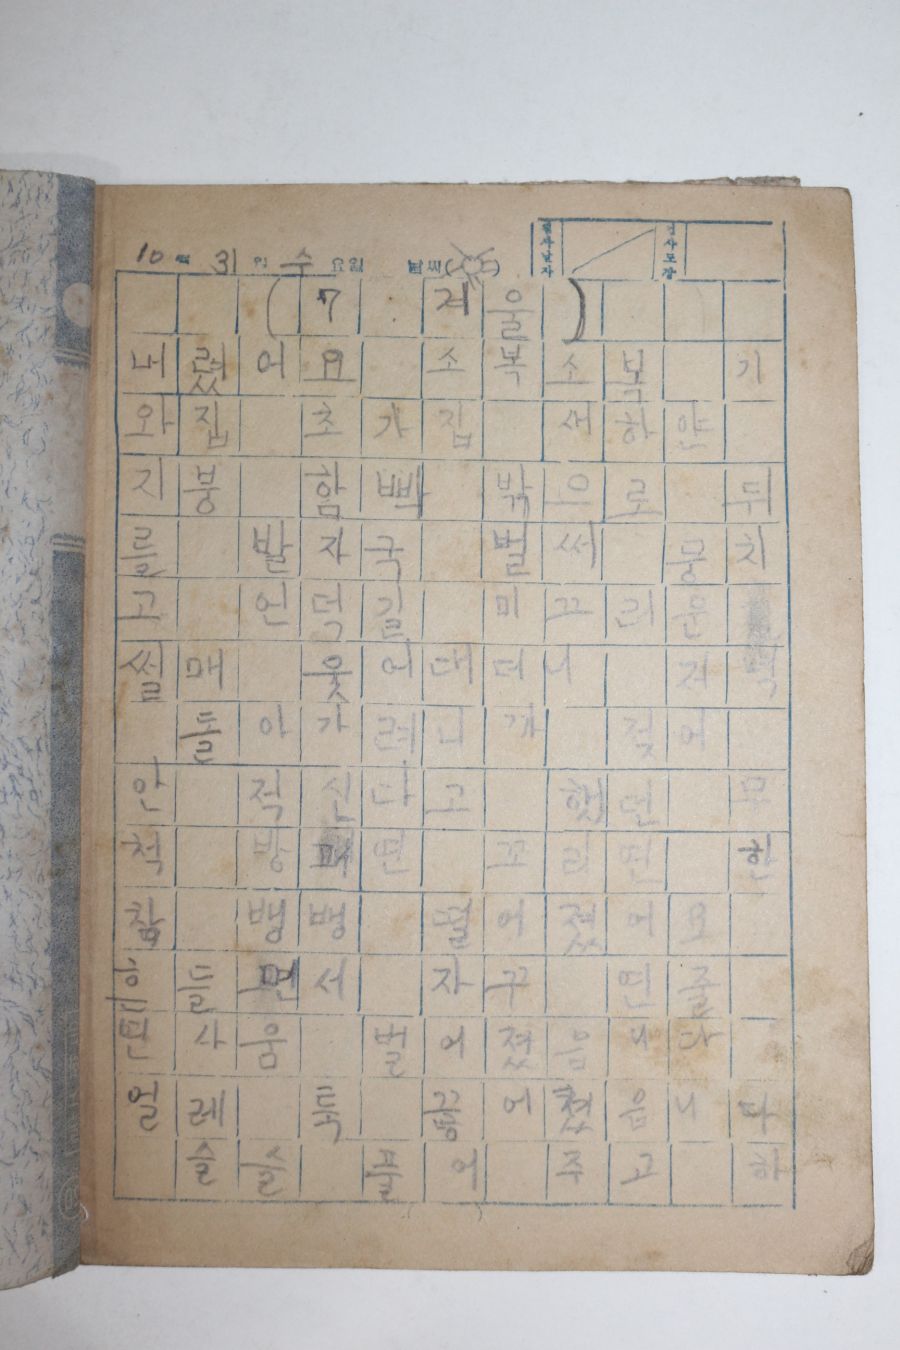 검사날자 검사도장
10월 31일 수요일 날씨( )
(7. 겨울)
내렸어요 소복소복 기
와집 초가집 새하얀
지붕 함빡 밖으로 뒤
를 발자국 벌써 뭉치
고 언덕길 미끄러운
썰매 웃어대더니 저벅
돌아가려니까 젖어
안 적신다고 했던 무
척 방패면 꼬리면 한
참 뱅뱅 떨어졌어요
흔들면서 자꾸 연줄
편싸움 벌어졌읍니다
얼레 툭 끊어졌읍니다
슬슬 풀어 주고 하